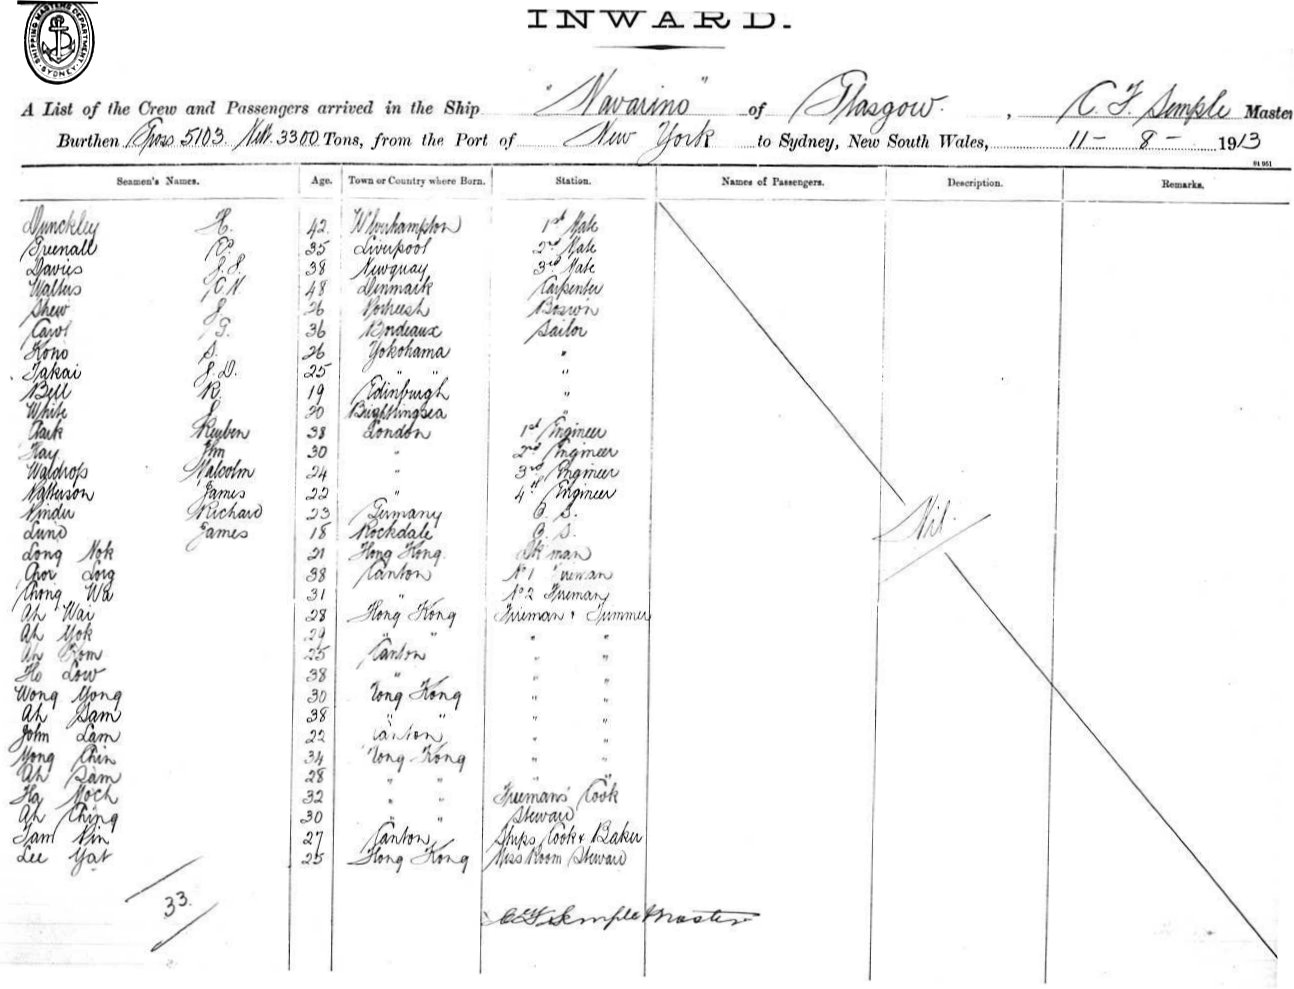 SHIPPING MASTERS DEPARTMENT. SYDNEY.
INWARD.
A List of the Crew and Passengers arrived in the Ship "Navarino" of Glasgow. , C. F. Semple Master
Burthen Gross 5103. Nett. 3300 Tons, from the Port of New York to Sydney, New South Wales, 11-8-1913
Seamen's Names. Age. Town or Country where Born. Station. Names of Passengers. Description. Remarks.
Dunckley H. 42 W'lverhampton 1st Mate
Greenall 35 Liverpool 2nd Mate
Davies J. J. 38 Newquay 3rd Mate
Walters C. N. 48 Denmark Carpenter
Shew J. 26 Bos'wn
Carol G. 36 Bordeaux Sailor
Kono S. 26 Yokohama "
Takai J. D. 25 " " "
Bell R. 19 Edinburgh "
White J. 20 Brightlingsea "
Clark Reuben 38 London 1st Engineer
Hay Jhn 30 " 2nd Engineer
Waldrop Malcolm 24 " 3rd Engineer
Patterson James 22 " 4th Engineer
Pinder Richard 23 Germany O. S.
Lund James 18 Rockdale O. S.
Long Nok 21 Hong Kong Dk man
Choi Long 38 Canton No 1 Fireman
Chong Wa 31 " No 2 Fireman
Ah Wai 28 Hong Kong Fireman & Trimmer
Ah Yok 29 " " " "
Ah Kom 25 Canton " "
Ho Low 38 " " "
Wong Yong 30 Hong Kong " "
Ah Sam 38 " " " "
John Lam 22 Canton " "
Yong Chin 34 Hong Kong " "
Ah Sam 28 " " " "
Ha Moch 32 " " Firemans' Cook
Ah Ching 30 " " Steward
Tam Pin 27 Canton Ships Cook & Baker
Lee Yat 25 Hong Kong Mess Room Steward
Nil.
33.
C F Semple Master